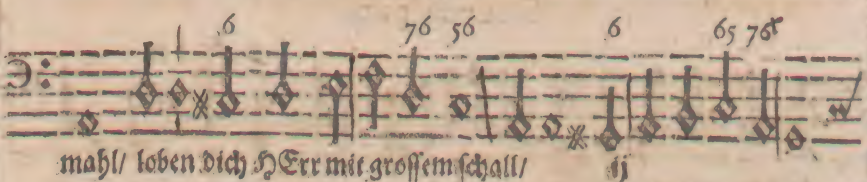 6 76 56 6 65 76x
mahl/ loben dich HErr mit grossem schall/ ij